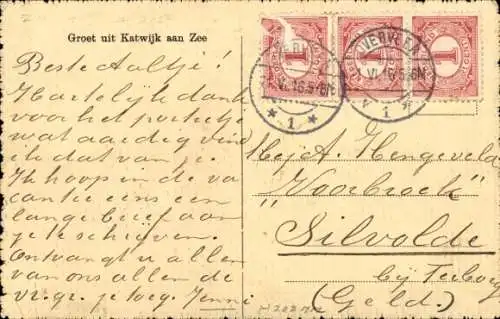 Groet uit Katwijk aan Zee
Beste Aaltje!
Hartelijk dank
voor het portretje
wat aardig vind
ik dat van je.
Ik hoop in de va
cantie eens een
lange brief aan
je te schrijven.
Ontvangt u allen
van ons allen de
vr. gr. je toeg. Jenni
1 1 1
VI.16.5-6N
VI.16.5-6N
* 1 *
1 *
Mej A. Hengeveld
"Voorbroek"
Silvolde
bij Terborg
(Geld.)